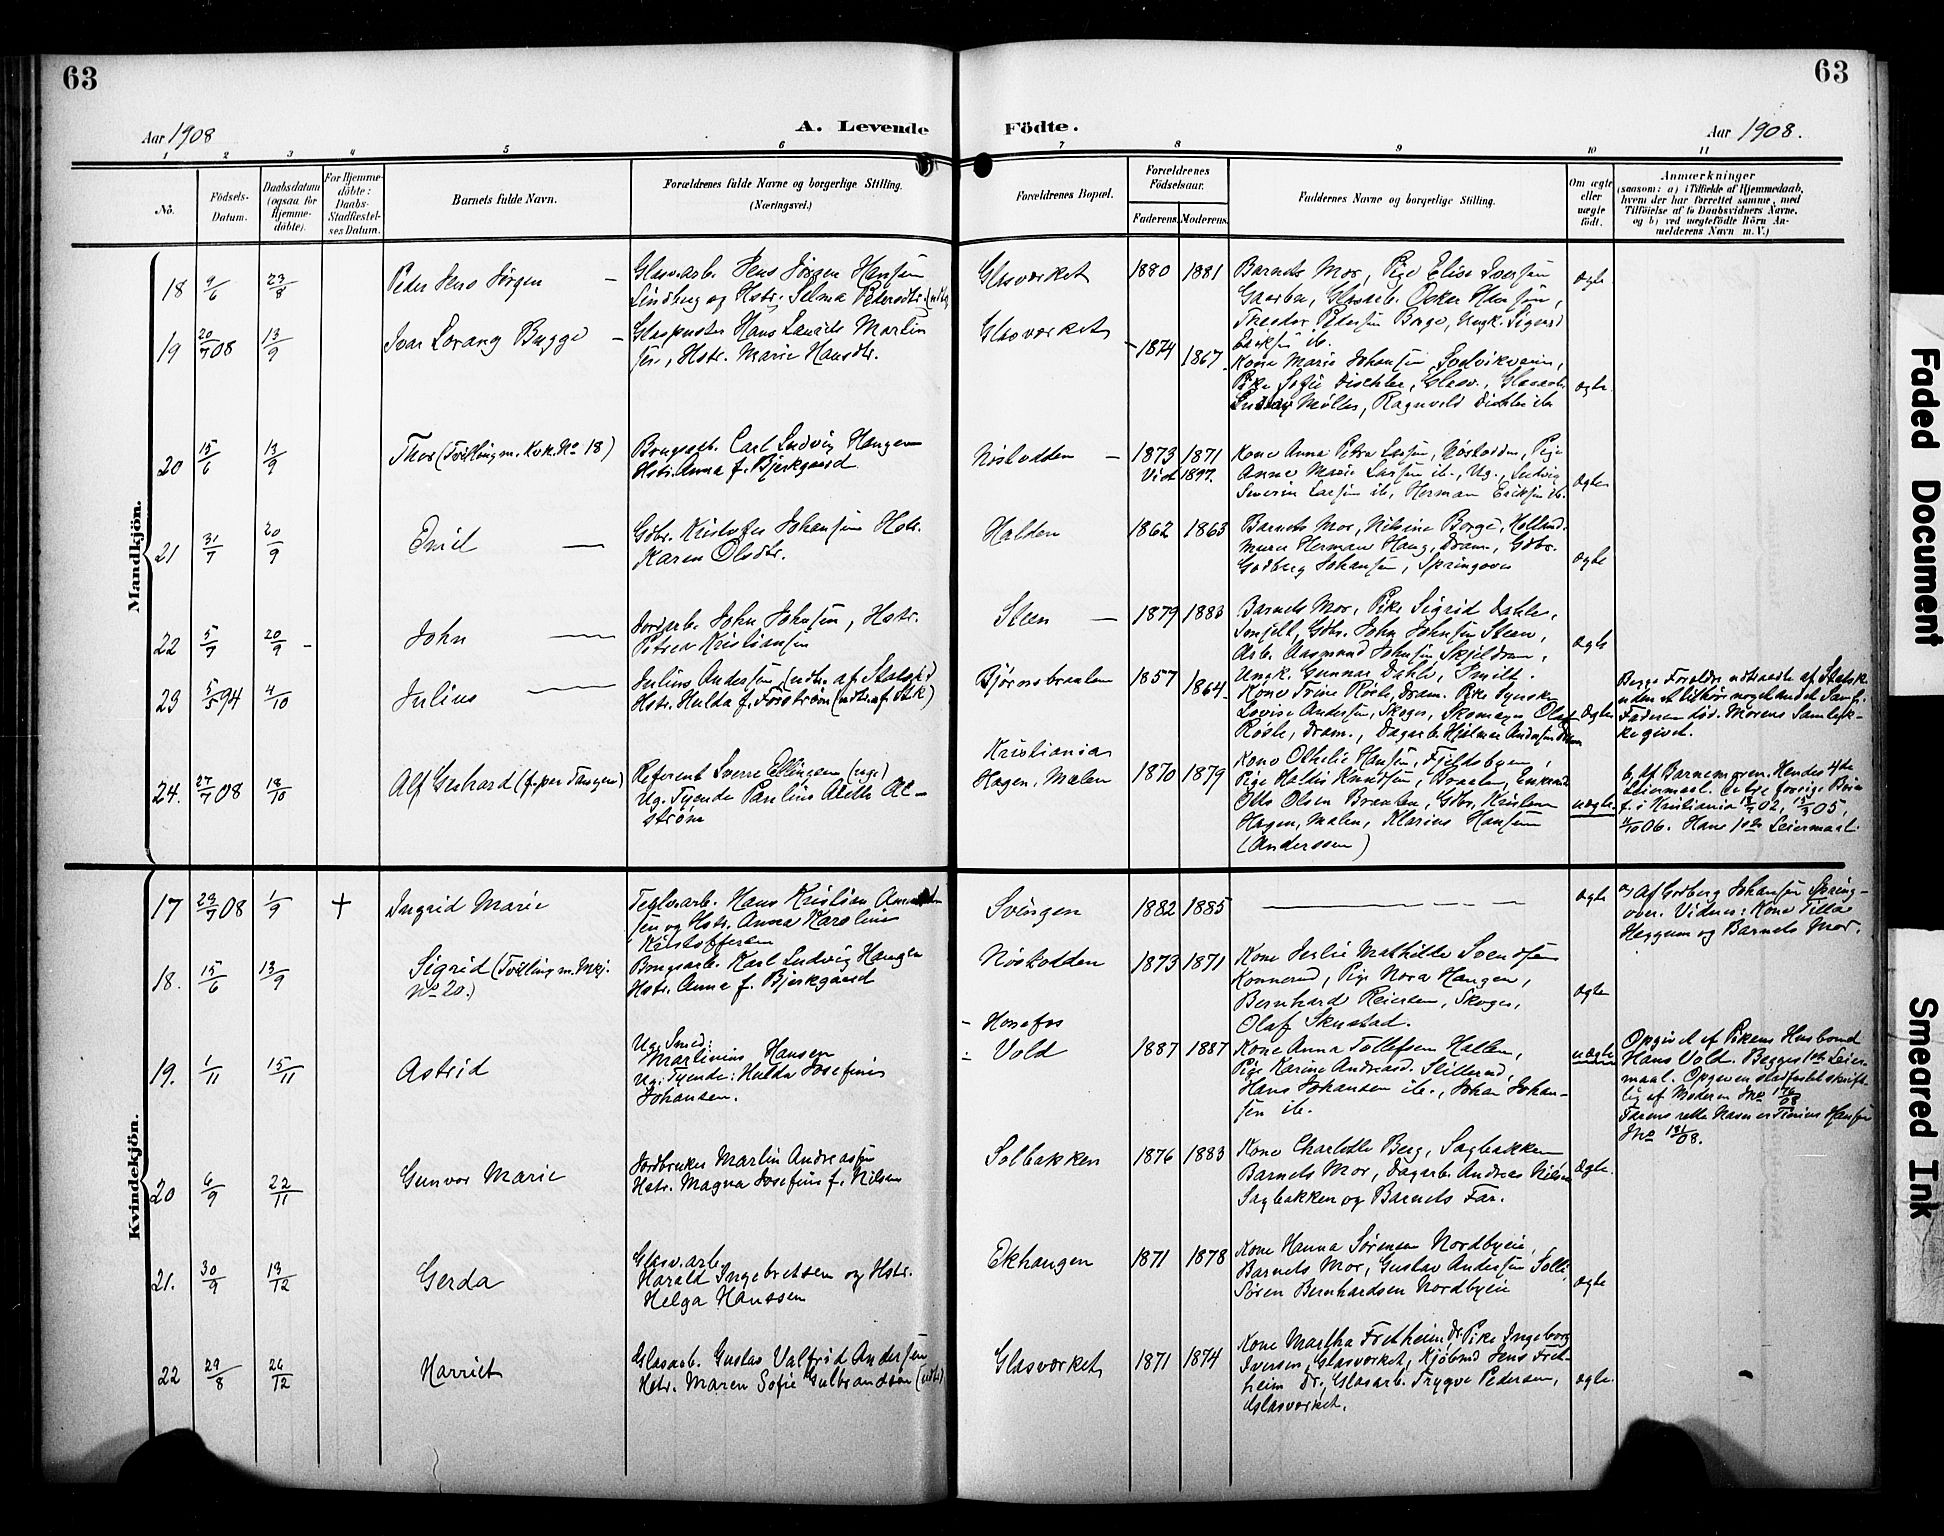 63
63
Aar 1908
A. Levende Födte.
Aar 1908.
1 2 3 4 5 6 7 8 9 10 11
No.
Födsels-
Datum.
Daabsdatum
(ogsaa for
Hjemme-
döbte).
For Hjemme-
döbte:
Daabs-
Stadfæstel-
ses Datum.
Barnets fulde Navn.
Forældrenes fulde Navne og borgerlige Stilling.
(Næringsvei.)
Forældrenes Bopæl.
Forældrenes
Födselsaar.
Faderens. Moderens.
Faddernes Navne og borgerlige Stilling.
Om ægte
eller
uægte
födt.
Anmærkninger
(saasom: a) i Tilfælde af Hjemmedaab,
hvem der har forrettet samme, med
Tilföielse af to Daabsvidners Navne,
og b) ved uegtefödte Börn An-
melderens Navn m. V.)
Mandkjön.
18 9/6 23/8 Peder Jens Jörgen
Glasv.arb. Jens Jörgen Hansen
Lindberg og Hstr. Selma Pedersdtr.
Glasværket 1880 1881
Barnets Mor, Pige Elise Iversen
ægte
19 20/7 08 13/9 Ivar Lorang Bugge
Hans Martin
sen, Hstr. Marie Hansdtr.
Glasværket 1874 1867
Theodor Pedersen Borge, Ungk. Sigurd
Kone Marie Johansen
ægte
20 15/6 13/9 Thor (Tvilling m. Kvk. No 18)
Brugsarb. Carl Ludvig Haugen
Hstr. Anna f. Bjerkgaard
Nöstodden 1873 1871
Viet 1897.
Kone Anna Petra Larsen, Nöstodden, Pige
Anne Marie Larsen ib., Ug. Ludvig
Severin Larsen ib., Herman Eriksen ib.
ægte
21 31/7 20/9 Emil
Gdbr. Kristofer Johansen Hstr.
Karen Olsdtr.
Halden 1862 1863
Barnets Mor, Nilsine Borge
Murer Herman Haug, Dram., Gdbr.
Godberg Johansen, Springover
ægte
22 5/7 20/9 John
Jordarb. John Johnsen, Hstr.
Petrea Kristiansen
Steen 1879 1883
Barnets Mor, Pike Sigrid Dahle,
Gdbr. John Johnsen Steen,
Arb. Aasmund Johnsen
Ungk. Gunnar Dahle
ægte
23 5/5 94 4/10 Julius
Julius Andersen (udtr. af Statsk.)
Hstr. Hulda f. Forström (udtr. af Stk)
Bjørnebraaten 1857 1864
Kone Trine Röste, Dram. Pike
Lovise Andersen, Skoger, Skomager Olaf
Röste, Dram., Dagarb. Hjalmar Andersen
Ægte
Begge Forældre udtraadte af Statsk.
Faderen död. Morens Samtyk-
ke givet.
24. 27/7 08 18/10 Alf Gerhard
Referent Sverre Ellingsen (ug.)
Ug. Tjende Pauline Alette Al-
ström
Kristiania
Hagen, Mælen 1870 1879
Kone Othelie Hansen, Fjeldbyen,
Pige Haldis Knudsen, Braaten, Enkemd
Otto Olsen Braaten, Gdbr. Kristian
Hagen, Mælen, Klarius Hansen
(Anderssen)
uægte
b, Af Barnemoren. Hendes 4de
Leiermaal. De tre forrige Börn
f. i Kristiania
Hans 1ste Leiermaal.
Kvindekjön.
17 29/7 08 1/9 + Ingrid Marie
Teglv.arb. Hans Kristian
sen og Hstr. Anna Karoline
Kristoffersen
Svingen 1882 1885
ægte
a, Af Godberg Johansen Spring-
over. Vidner: Kone Tilla
Heggum og Barnets Mor.
18. 15/6 13/9 Sigrid (Tvilling m. Mkj.
No 20.)
Brugsarb. Karl Ludvig Haugen
Hstr. Anna f. Bjerkgaard
Nöstodden 1873 1871
Kone Julie Mathilde Svendsen
Konnerud, Pige Nora Haugen,
Bernhard Reiersen, Skoger,
Olaf Skustad.
ægte
19. 1/11 15/11 Astrid
Ug. Smed:
Martinius Hansen
Ug. Tjende: Hulda Josefine
Johansen.
Hönefos
Vold 1887 1887
Kone Anna Tollefsen Hallen,
Pige Karine Andreasd. Slitterud,
Hans Johansen ib., Johan Johan-
sen ib.
uægte
Opgivet af Pikens Husbond
Hans Vold. Begges 1ste Leier-
maal. Opgaven stadfæstet skrift-
lig af Moderen
20 6/9 22/11 Gunvor Marie
Jordbruker Martin Andreassen
Hstr. Magna Josefine f. Nilsen
Solbakken 1876 1883
Kone Charlotte Berg, Sagbakken
Barnets Mor, Dagarb. Andreas Nilsen
Sagbakken og Barnets Far.
Ægte.
21. 30/9 13/12 Gerda
Glasv.arb.
Harald Ingebretsen og Hstr.
Helga Hanssen
Ekhaugen 1871 1878
Kone Hanna Sörensen Nordbyeie,
Barnets Mor, Gustav Andersen Solli,
Sören Bernhardsen Nordbyeie
ægte
22 29/8 26/12 Harriet
Glasarb. Gustav Valfrid Andersen
Hstr. Maren Sofie Gulbrandsen (udtr.)
Glasværket 1871 1874
Kone Martha Fretheim Dr, Pike Ingeborg
Iversen, Glasværket, Kjöbmd Jens Fret-
heim Dr., Glasarb. Trygve Pedersen,
Glasværket.
ægte.
Faded Document
Smeared Ink